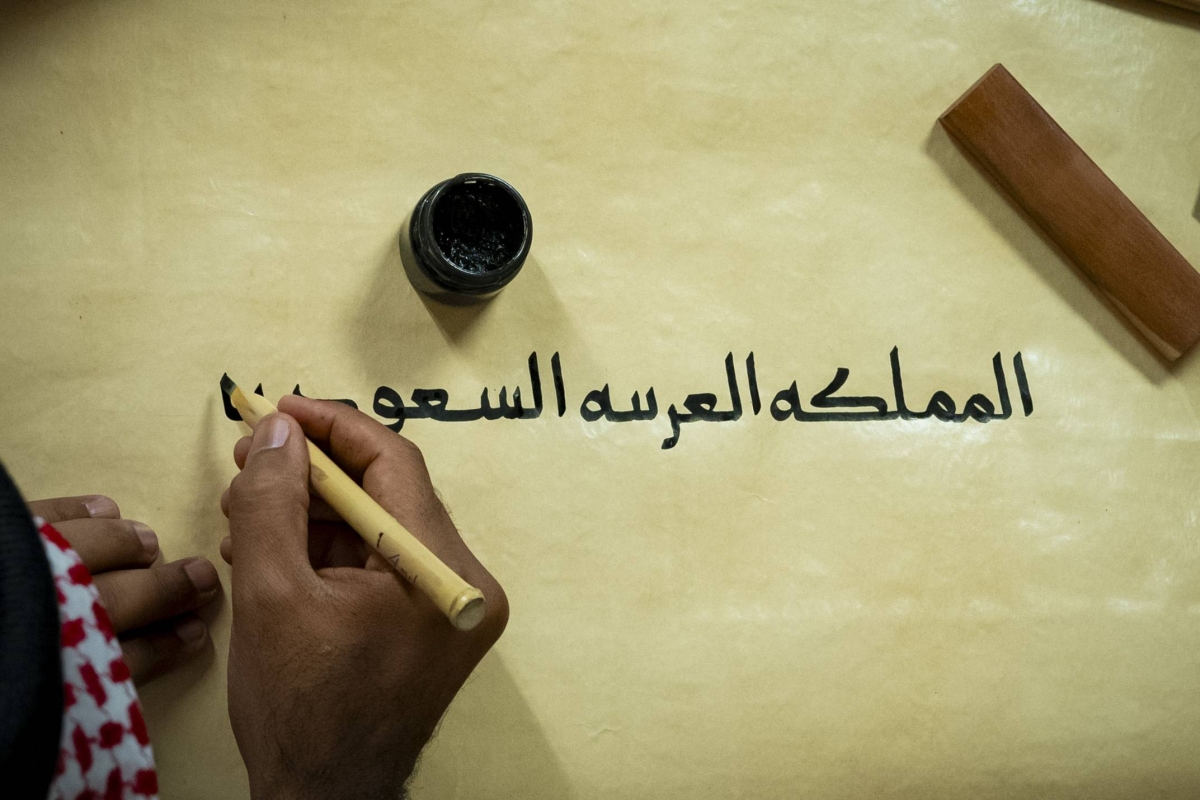 المملكه العربيه السعوديه